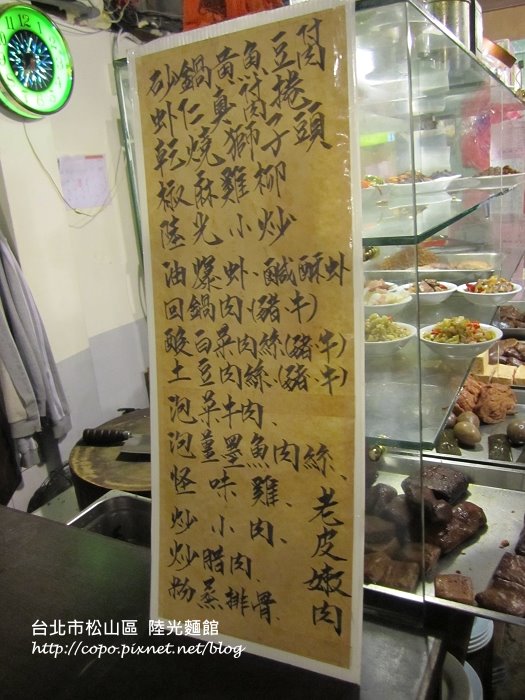 砂鍋黃魚豆腐
蝦仁真腐捲
乾燒獅子頭
椒酥雞柳
陸光小炒
油爆虾、鹹酥虾
回鍋肉(豬、牛)
酸白菜肉絲(豬、牛)
土豆肉絲(豬、牛)
泡菜牛肉、
泡薑墨魚肉絲、
怪味雞、
炒小肉、
炒腊肉、
粉蒸排骨、
老皮嫩肉
台北市松山區 陸光麵館
http://copo.pixnet.net/blog